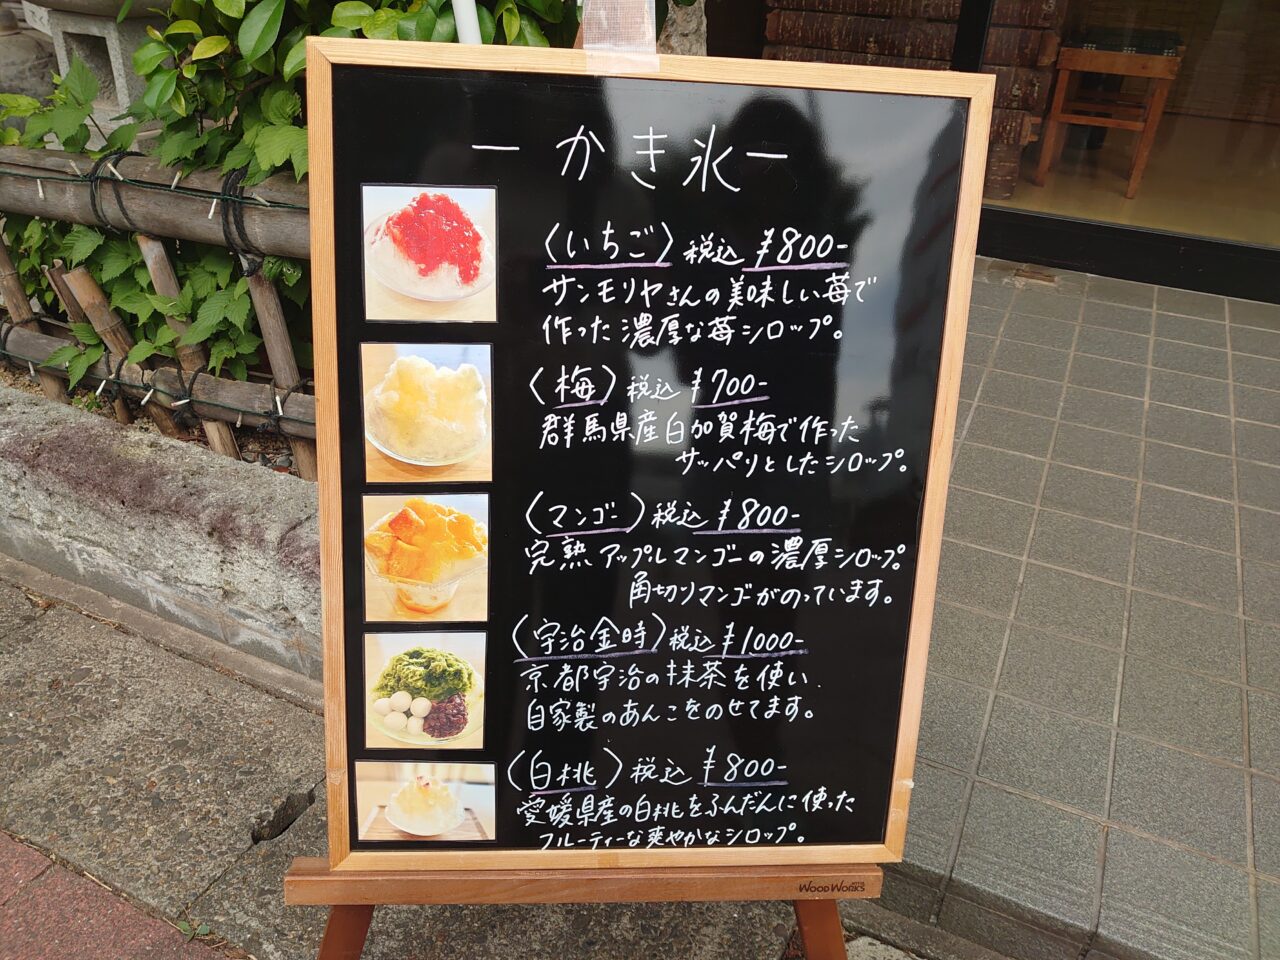 ーかき氷ー
〈いちご〉税込¥800-
サンモリヤさんの美味しい苺で
作った濃厚な苺シロップ。
〈梅〉税込¥700-
群馬県産白加賀梅で作った
サッパリとしたシロップ。
〈マンゴー〉税込¥800-
完熟アップルマンゴーの濃厚シロップ。
角切りマンゴがのっています。
〈宇治金時〉税込¥1000-
京都宇治の抹茶を使い、
自家製のあんこをのせてます。
〈白桃〉税込¥800-
愛媛県産の白桃をふんだんに使った
フルーティーな爽やかなシロップ。
WOOD WORKS